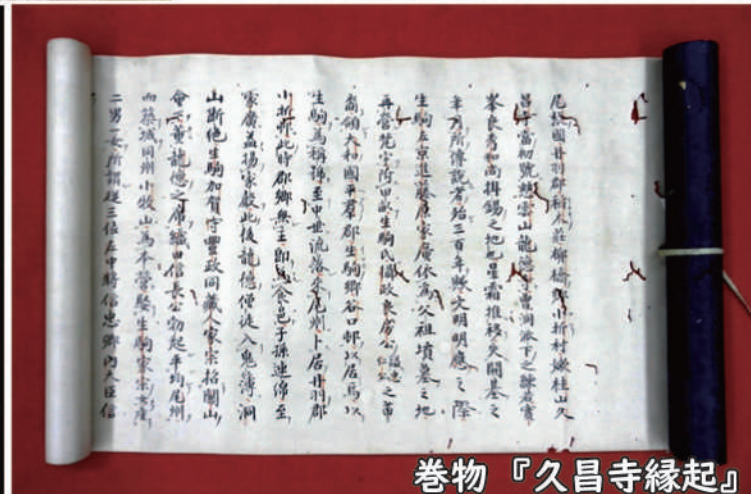 尾張國丹羽郡稲木莊柳橋郷小折村嫩桂山久
昌寺當初號瑞雲山龍徳寺曹洞派下之練若實
峯良秀和尚掛錫之地也星霜推移失開基之
年月所傳説者殆三百年縣文明明應之際
生駒左京進家廣依為父祖墳墓之地
再營梵宇附田畝生駒氏攝政良房公之苗
裔領大和國平群郡生駒郷谷口邨以居焉以
生駒為稱號至中世流落来尾州卜居丹羽郡
小折邨此時郡郷無主即為食邑子孫連綿至
家廣益揚家聲此後龍徳僧徒入鬼簿洞
山断絶生駒加賀守豊政同蔵人家宗招關山
會下黄龍徳之席織田信長公初起平均尾州
而築城同州小牧山為本營娶生駒家宗之女産
二男一女所謂從三位左中将信忠郷内大臣信
巻物『久昌寺縁起』